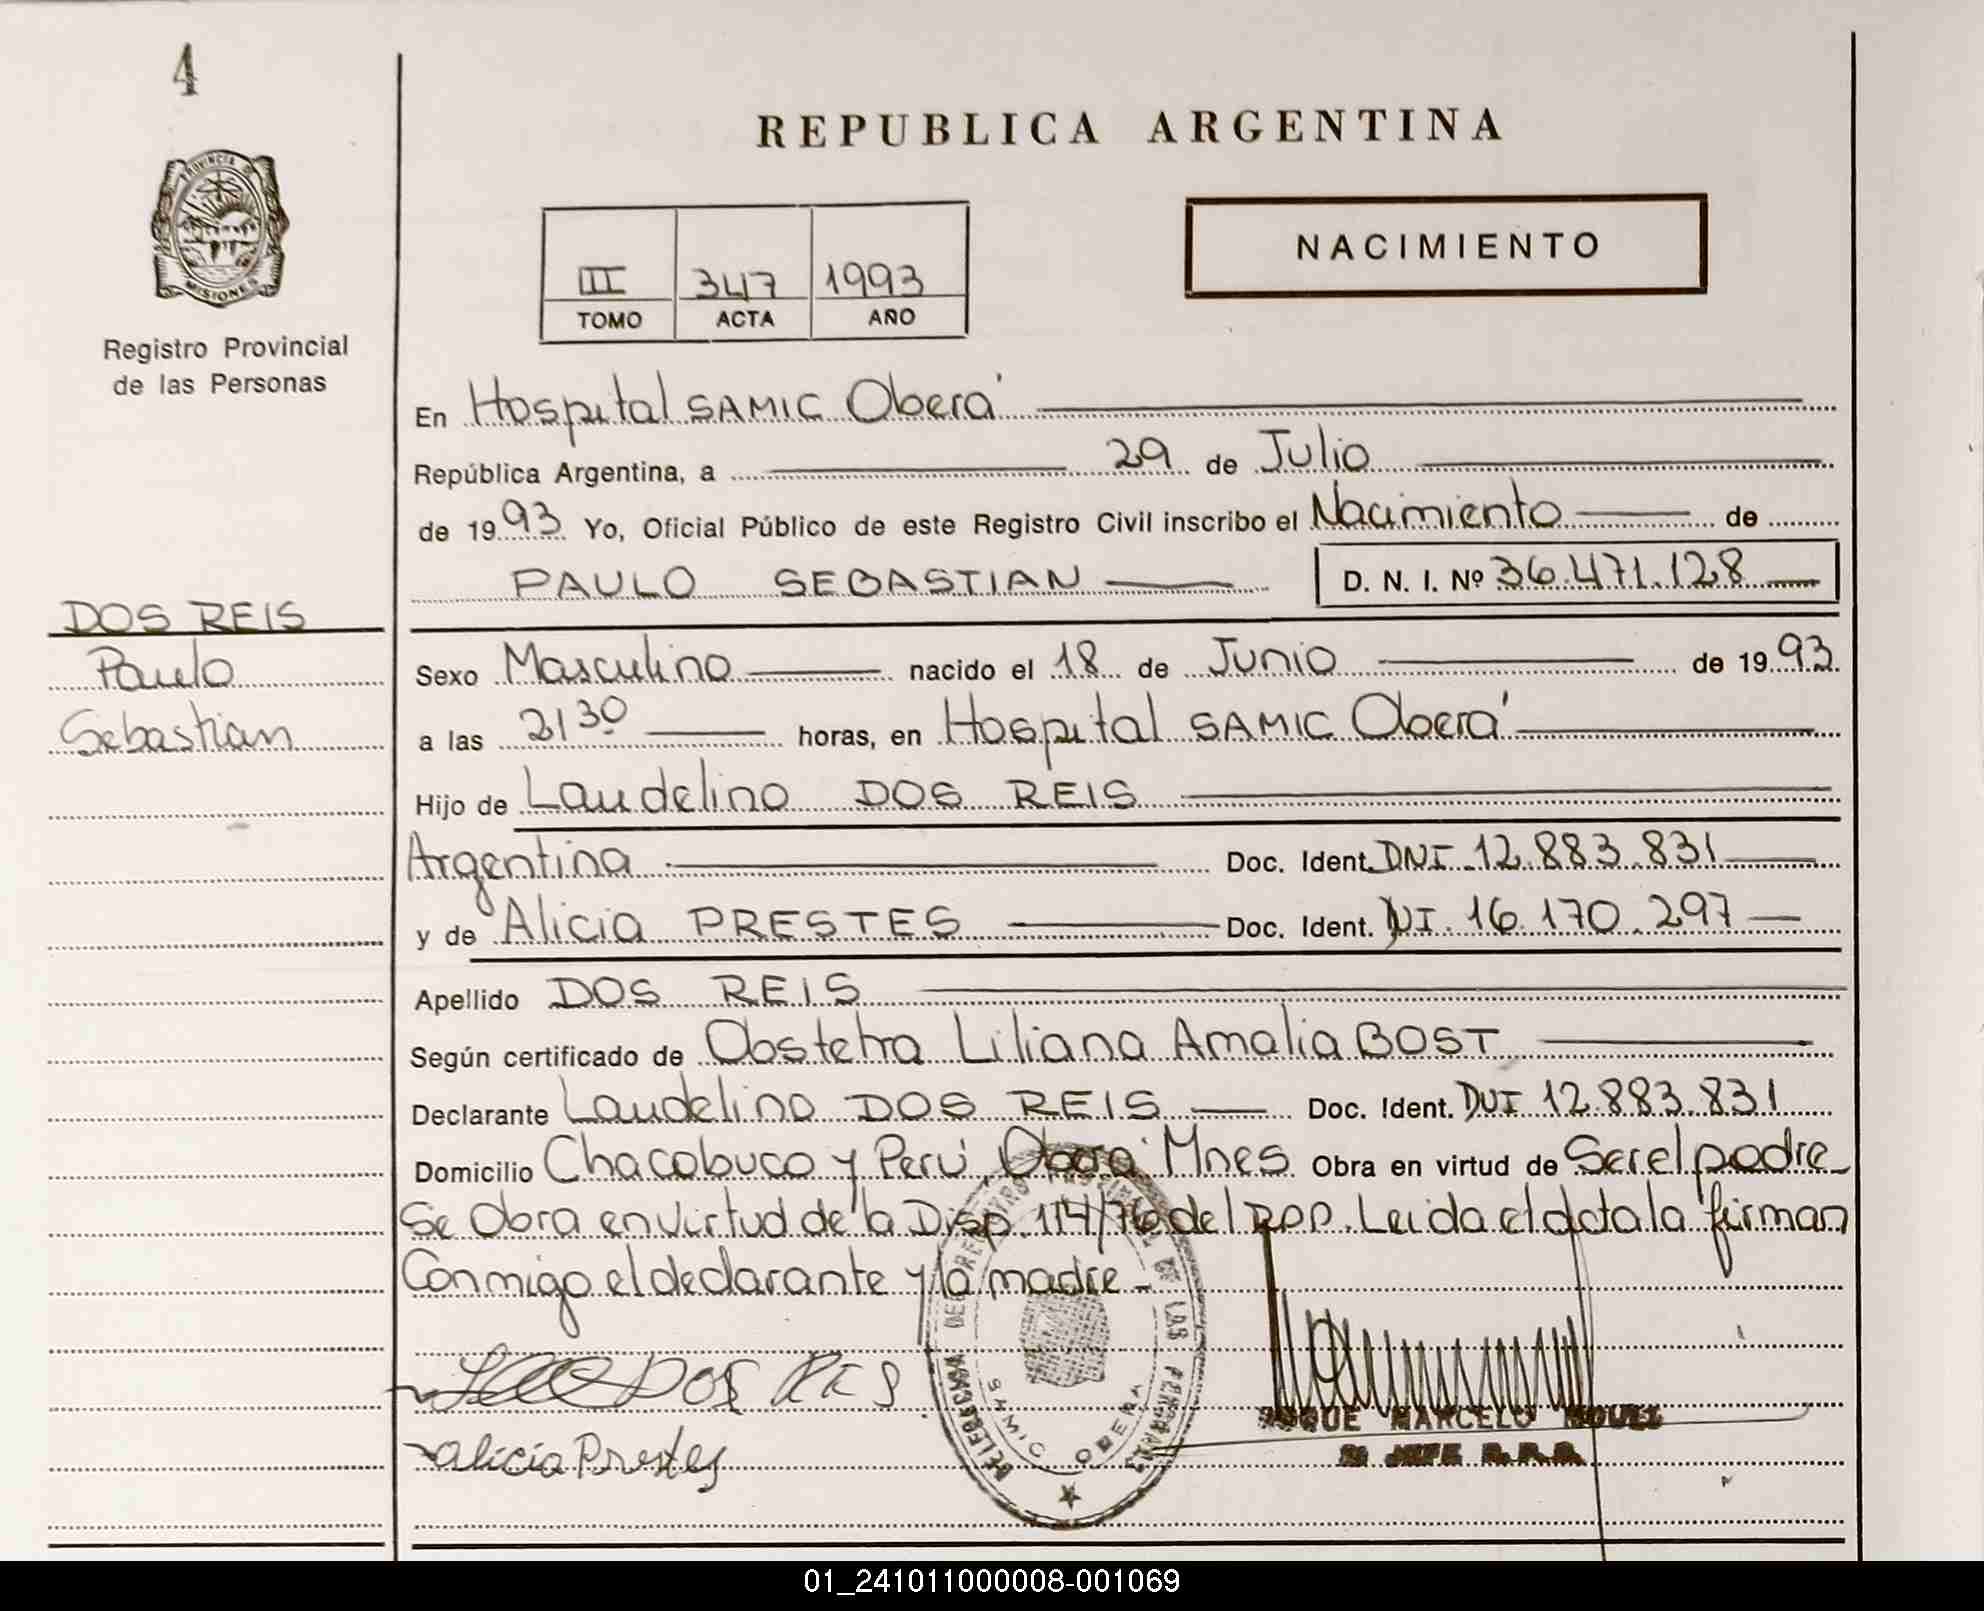 4
REPUBLICA ARGENTINA
PROVINCIA DE
MISIONES
Registro Provincial
de las Personas
III 347 1993
TOMO ACTA AÑO
NACIMIENTO
En Hospital SAMIC Oberá
República Argentina, a 29 de Julio
de 1993 Yo, Oficial Público de este Registro Civil inscribo el Nacimiento de
PAULO SEBASTIAN D. N. I. Nº 36.471.128
DOS REIS
Paulo
Sebastian
Sexo Masculino nacido el 18 de Junio de 1993
a las 21 30 horas, en Hospital SAMIC Oberá
Hijo de Laudelino DOS REIS
Argentina Doc. Ident. DNI 12.883.831
y de Alicia PRESTES Doc. Ident. NI. 16.170.297
Apellido DOS REIS
Según certificado de Obstetra Liliana Amalia BOST
Declarante Laudelino DOS REIS Doc. Ident. DNI 12.883.831
Domicilio Chacabuco y Perú Oberá Mnes Obra en virtud de Ser el padre
Se Obra en virtud de la Disp. 114/76 del RPP. Leida el acta la firman
Conmigo el declarante y la madre -
DOS REIS
Alicia Prestes
DELEGACION DEL REGISTRO PROVINCIAL DE LAS PERSONAS
OBERA
ROQUE MARCELO
JEFE R.P.P.
01_241011000008-001069